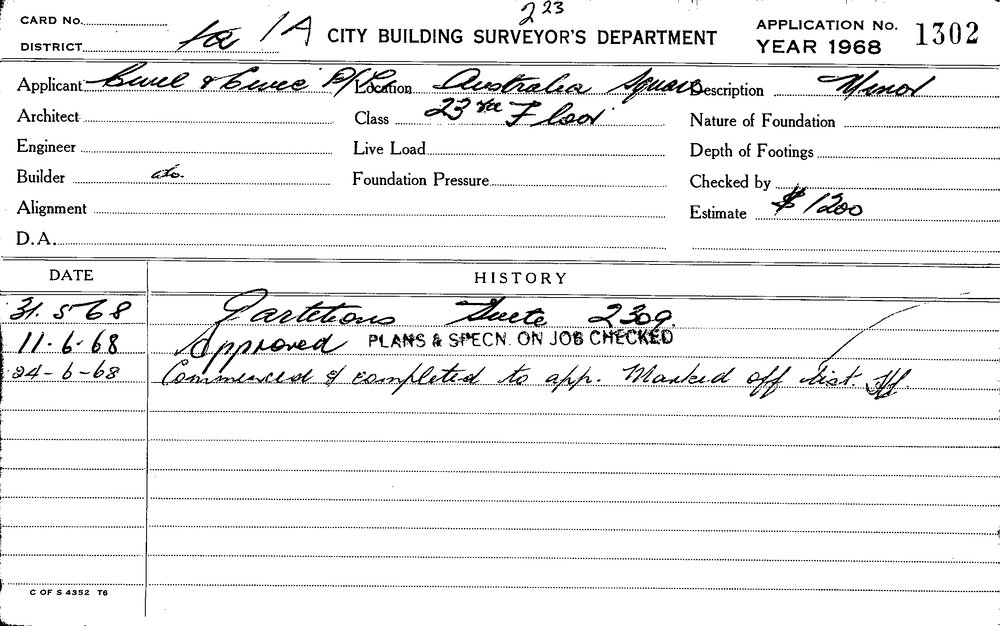 2 23
CARD No.
1a 1A CITY BUILDING SURVEYOR'S DEPARTMENT
APPLICATION No. 1302
DISTRICT
YEAR 1968
Applicant Civil & Civic P/L Location Australia Square Description Minor
Architect Class 23rd Floor Nature of Foundation
Engineer Live Load Depth of Footings
Builder do. Foundation Pressure Checked by
Alignment Estimate $1200
D.A.
DATE HISTORY
31.5.68 Partitions Suite 2309
11.6.68 Approved PLANS & SPECN. ON JOB CHECKED
24-6-68 Commenced & completed to app. Marked off list.
C OF S 4352 T6